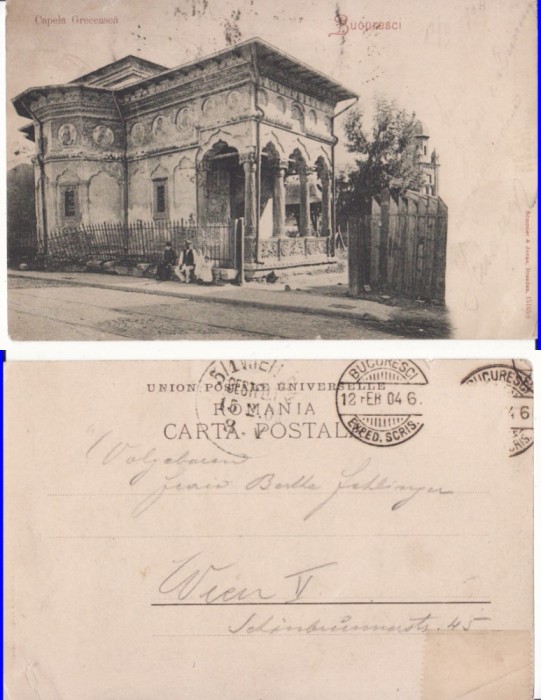 Capela Grecească
Bucuresci
UNION POSTALE UNIVERSELLE
ROMANIA
CARTA POSTALA
BUCURESCI
12 FEB 04 6.
EXPED. SCRIS.
BUCURESCI
4 6
SCRIS.
5/1 WIEN
BESTELLT
15
2
Wolgeboren
Frau Bertha
Wien V
Schönbrunnerstr. 45